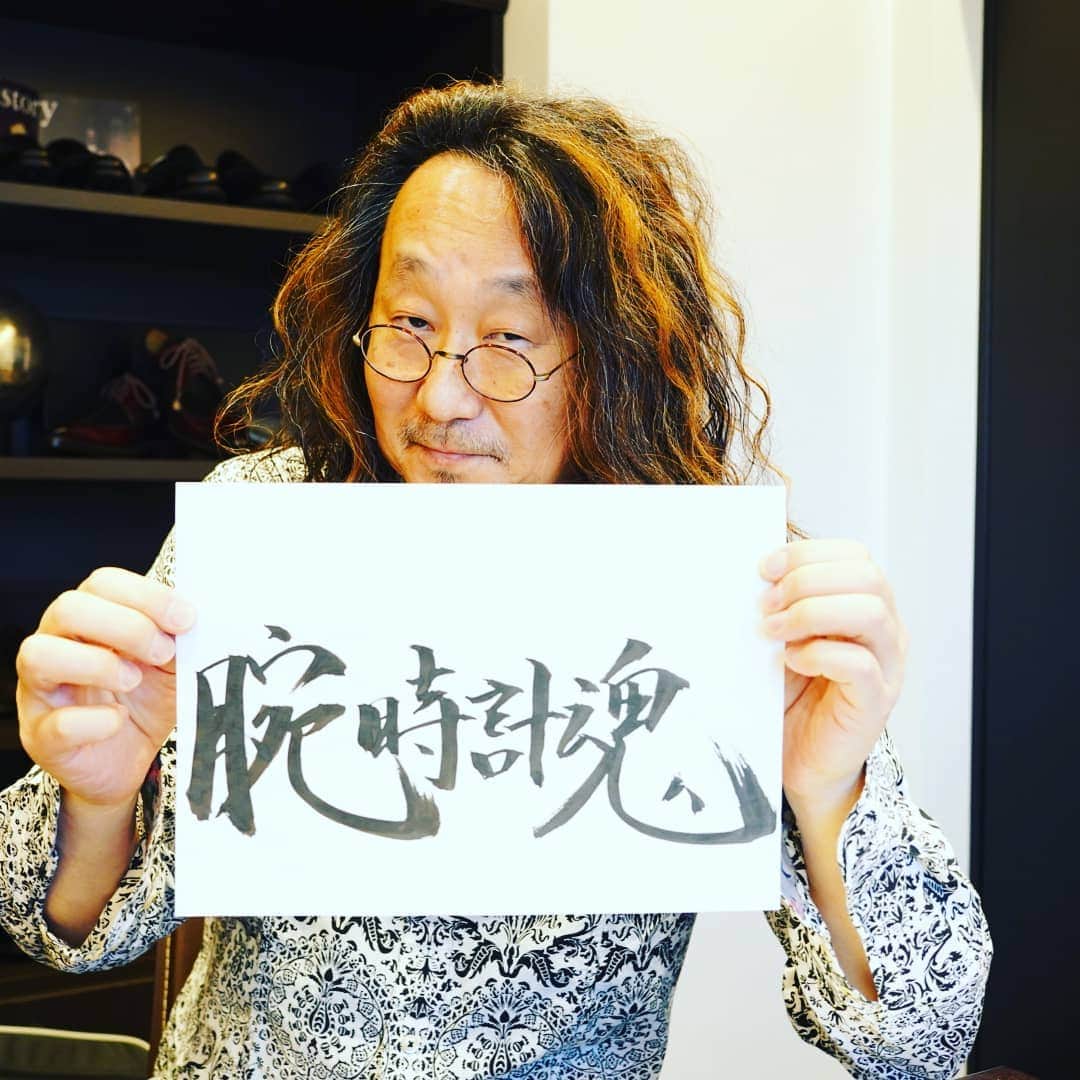 story
腕時計魂